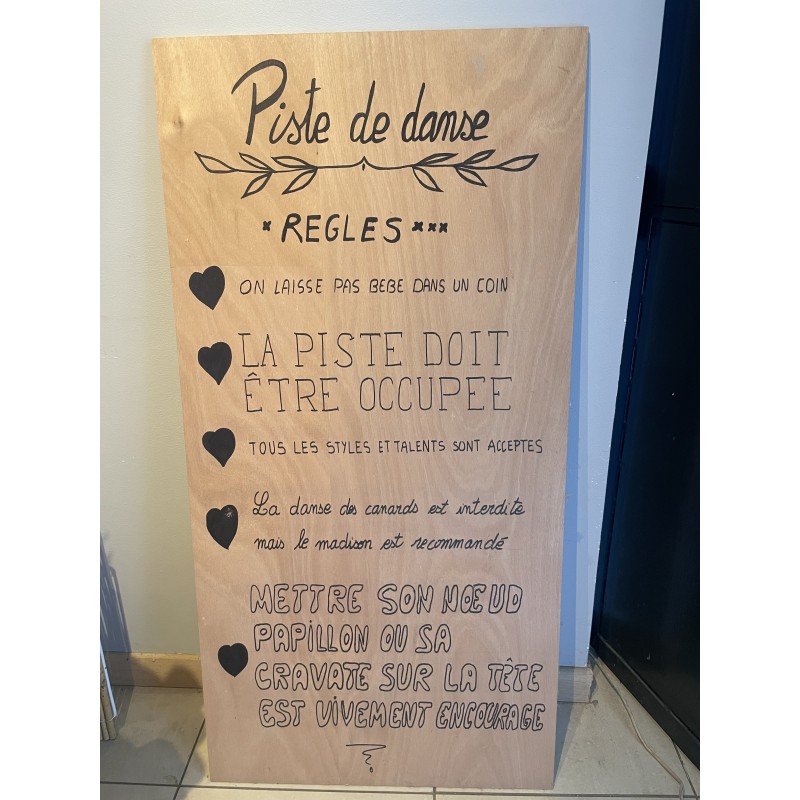 Piste de danse
* REGLES ***
ON LAISSE PAS BEBE DANS UN COIN
LA PISTE DOIT
ÊTRE OCCUPEE
TOUS LES STYLES ET TALENTS SONT ACCEPTES
La danse des canards est interdite
mais le madison est recommandé
METTRE SON NŒUD
PAPILLON OU SA
CRAVATE SUR LA TÊTE
EST VIVEMENT ENCOURAGE